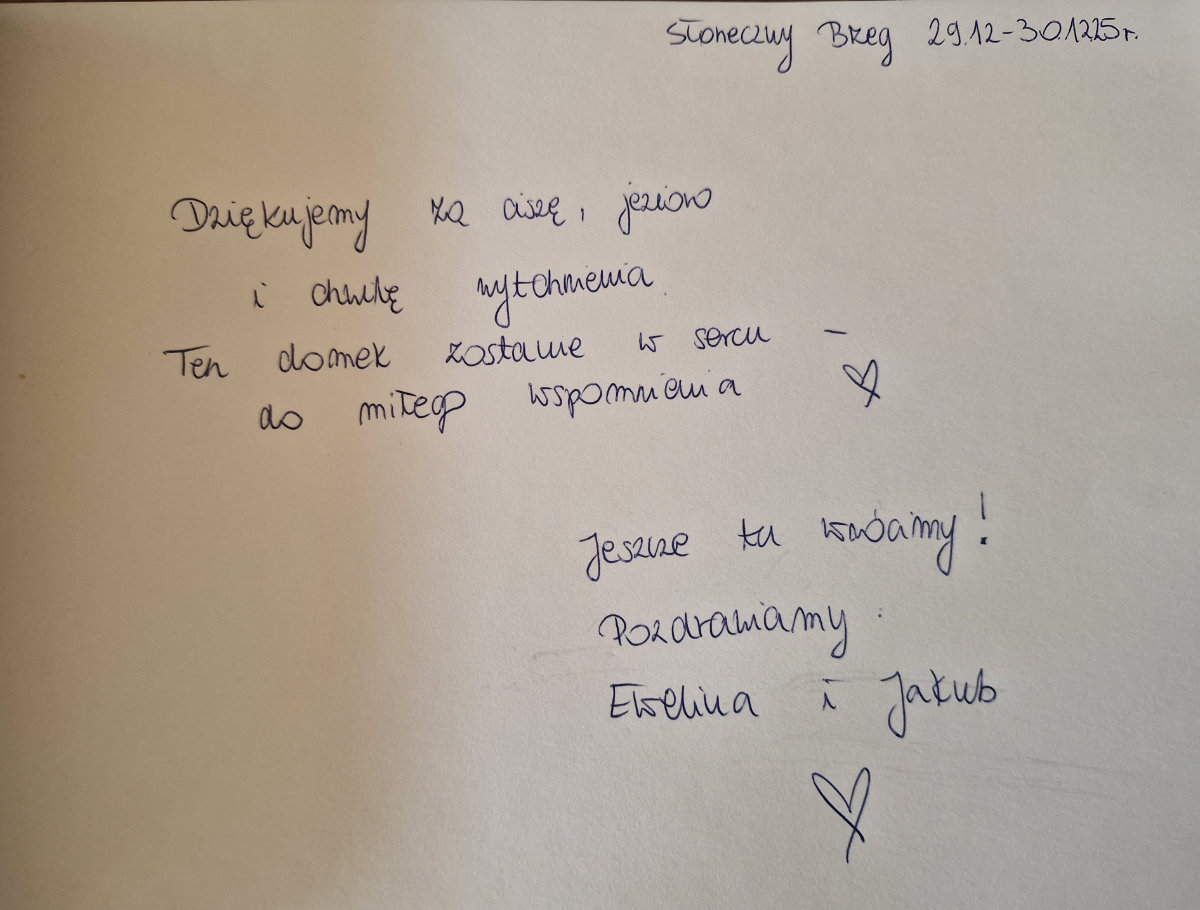 Słoneczny Brzeg 29.12-30.12.25r.
Dziękujemy za ciszę, jezioro
i chwilę wytchnienia.
Ten domek zostanie w sercu –
do miłego wspomnienia
Jeszcze tu wrócimy!
Pozdrawiamy
Ewelina i Jakub